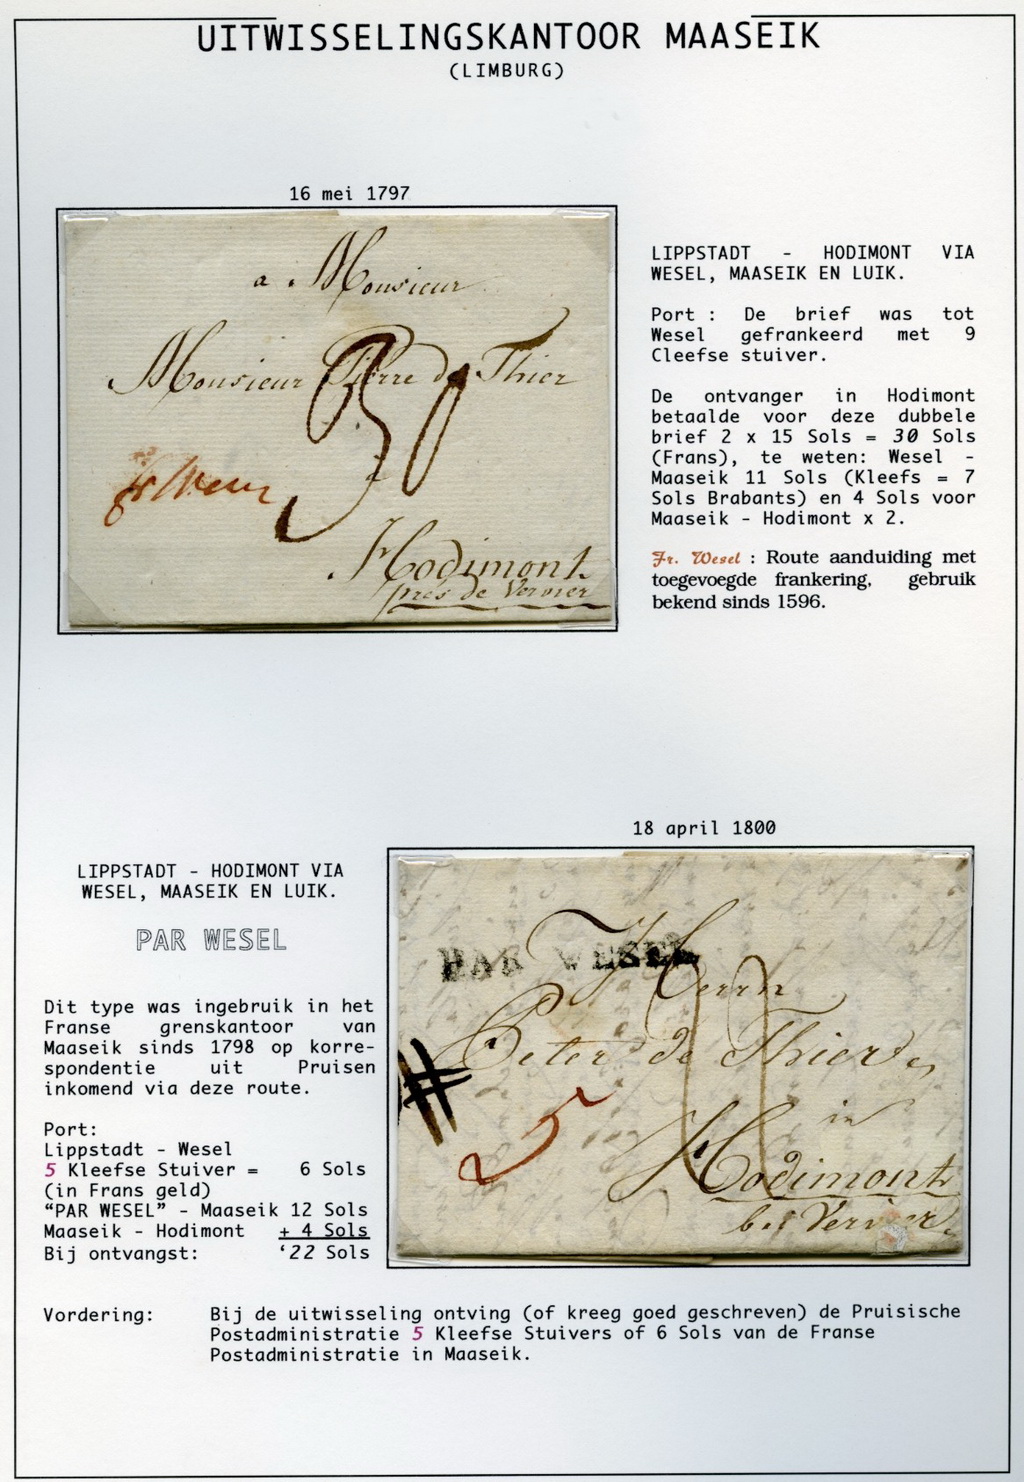 UITWISSELINGSKANTOOR MAASEIK
(LIMBURG)
16 mei 1797
a Monsieur
Monsieur Pierre de Thier
30
fr Wesel
Hodimont
près de Vervier
LIPPSTADT - HODIMONT VIA
WESEL, MAASEIK EN LUIK.
Port : De brief was tot
Wesel gefrankeerd met 9
Cleefse stuiver.
De ontvanger in Hodimont
betaalde voor deze dubbele
brief 2 x 15 Sols = 30 Sols
(Frans), te weten: Wesel -
Maaseik 11 Sols (Kleefs = 7
Sols Brabants) en 4 Sols voor
Maaseik - Hodimont x 2.
Fr. Wesel : Route aanduiding met
toegevoegde frankering, gebruik
bekend sinds 1596.
18 april 1800
LIPPSTADT - HODIMONT VIA
WESEL, MAASEIK EN LUIK.
PAR WESEL
Dit type was ingebruik in het
Franse grenskantoor van
Maaseik sinds 1798 op korre-
spondentie uit Pruisen
inkomend via deze route.
Port:
Lippstadt - Wesel
5 Kleefse Stuiver = 6 Sols
(in Frans geld)
“PAR WESEL” - Maaseik 12 Sols
Maaseik - Hodimont + 4 Sols
Bij ontvangst: ‘22 Sols
PAR WESEL
Herrn
Peter de Thier
5
in
Hodimont
bei Vervier
Vordering: Bij de uitwisseling ontving (of kreeg goed geschreven) de Pruisische
Postadministratie 5 Kleefse Stuivers of 6 Sols van de Franse
Postadministratie in Maaseik.